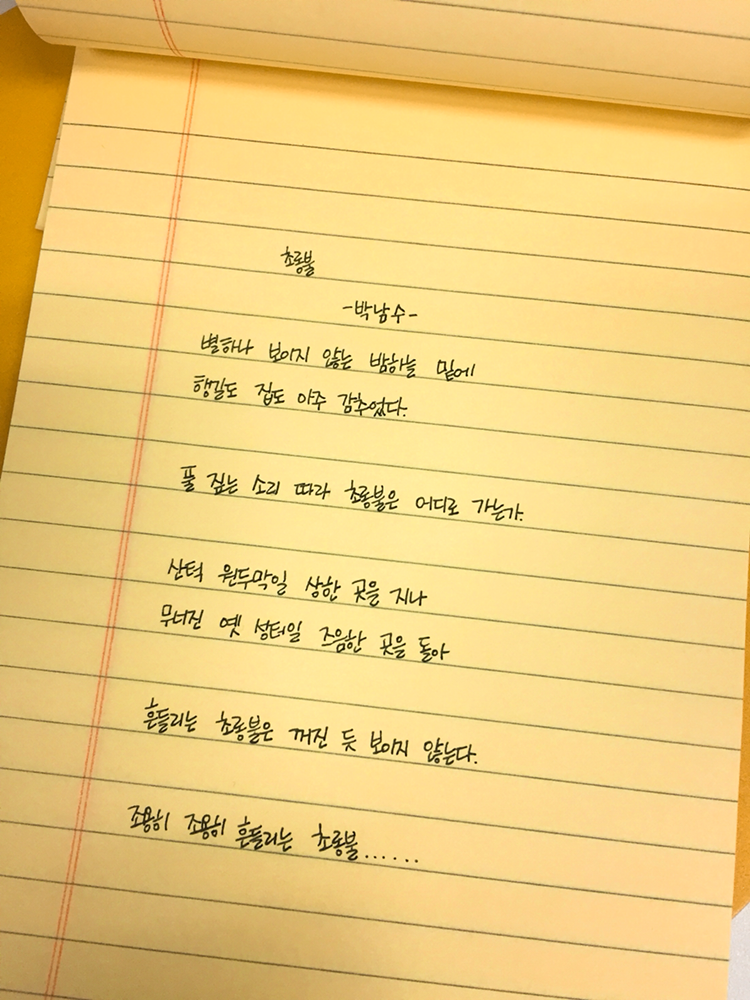 초롱불
-박남수-
별하나 보이지 않는 밤하늘 밑에
행길도 집도 아주 감추었다.
풀 짚는 소리 따라 초롱불은 어디로 가는가.
산턱 원두막일 상한 곳을 지나
무너진 옛 성터일 즈음한 곳을 돌아
흔들리는 초롱불은 꺼진 듯 보이지 않는다.
조용히 조용히 흔들리는 초롱불......